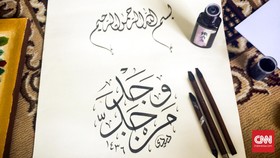 بسم الله الرحمن الرحيم
من جد وجد
١٤٣٦
CNN